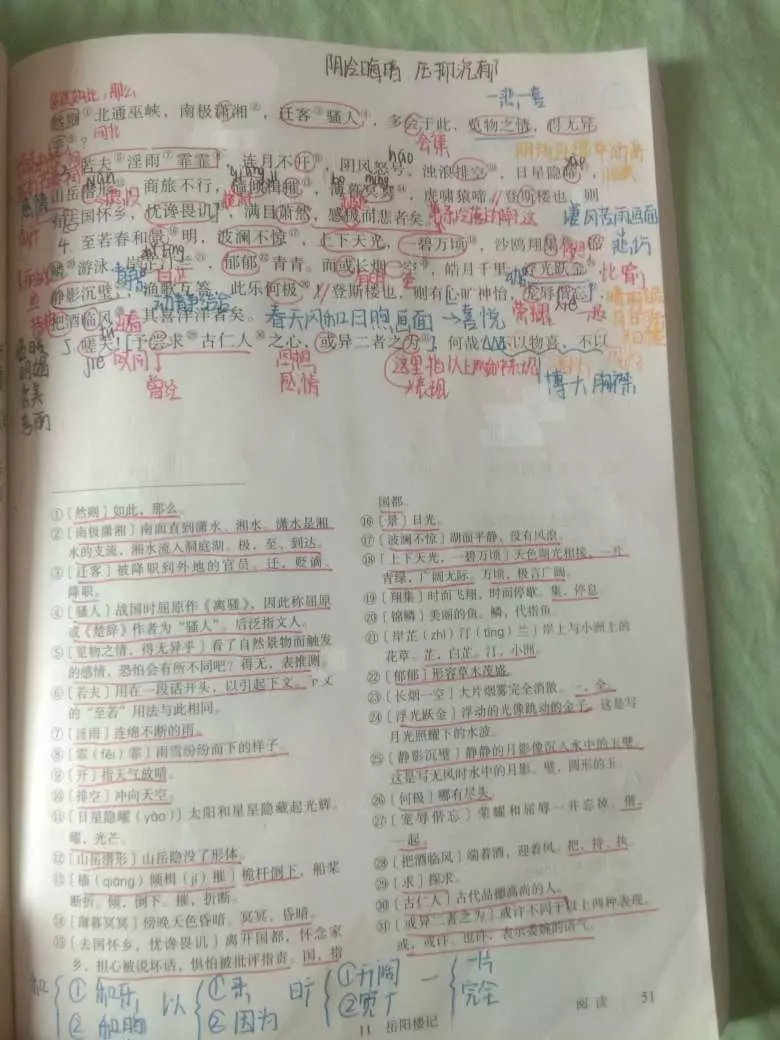 阴冷晦暗 压抑沉郁
一悲一喜
然则①北通巫峡，南极潇湘②，迁客③骚人④，多会于此，览物之情，得无异
乎⑤？
会集
若夫⑥淫雨⑦霏霏⑧，连月不开⑨，阴风怒号，浊浪排空⑩，日星隐曜⑪，
山岳潜形⑫，商旅不行，樯倾楫摧⑬，薄暮冥冥⑭，虎啸猿啼。登斯楼也，则
有去国怀乡，忧谗畏讥⑮，满目萧然，感极而悲者矣。
凄风苦雨画面
4 至若春和景⑯明，波澜不惊⑰，上下天光，一碧万顷⑱，沙鸥翔集⑲，
鳞⑳游泳，岸芷汀兰㉑，郁郁㉒青青。而或长烟一空㉓，皓月千里，浮光跃金㉔，
比喻
静影沉璧㉕，渔歌互答，此乐何极㉖！登斯楼也，则有心旷神怡，宠辱偕忘㉗，
把酒临风㉘，其喜洋洋者矣。
春天风和日煦画面→喜悦
5 嗟夫！予尝求㉙古仁人㉚之心，或异二者之为㉛，何哉？不以物喜，不以
jiē
曾经
思想
感情
表现
博大胸襟
①〔然则〕如此，那么。
②〔南极潇湘〕南面直到潇水、湘水。潇水是湘
水的支流，湘水流入洞庭湖。极，至、到达。
③〔迁客〕被降职到外地的官员。迁，贬谪、
降职。
④〔骚人〕战国时屈原作《离骚》，因此称屈原
或《楚辞》作者为“骚人”。后泛指文人。
⑤〔览物之情，得无异乎〕看了自然景物而触发
的感情，恐怕会有所不同吧？得无，表推测。
⑥〔若夫〕用在一段话开头，以引起下文。下文
的“至若”用法与此相同。
⑦〔淫雨〕连绵不断的雨。
⑧〔霏（fēi）霏〕雨雪纷纷而下的样子。
⑨〔开〕指天气放晴。
⑩〔排空〕冲向天空。
⑪〔日星隐曜（yào）〕太阳和星星隐藏起光辉。
曜，光芒。
⑫〔山岳潜形〕山岳隐没了形体。
⑬〔樯（qiáng）倾楫（jí）摧〕桅杆倒下，船桨
断折。倾，倒下。摧，折断。
⑭〔薄暮冥冥〕傍晚天色昏暗。冥冥，昏暗。
⑮〔去国怀乡，忧谗畏讥〕离开国都，怀念家
乡，担心被说坏话，惧怕被批评指责。国，指
国都。
⑯〔景〕日光。
⑰〔波澜不惊〕湖面平静，没有风浪。
⑱〔上下天光，一碧万顷〕天色湖光相接，一片
青绿，广阔无际。万顷，极言广阔。
⑲〔翔集〕时而飞翔，时而停歇。集，停息。
⑳〔锦鳞〕美丽的鱼。鳞，代指鱼。
㉑〔岸芷（zhǐ）汀（tīng）兰〕岸上与小洲上的
花草。芷，白芷。汀，小洲。
㉒〔郁郁〕形容草木茂盛。
㉓〔长烟一空〕大片烟雾完全消散。一，全。
㉔〔浮光跃金〕浮动的光像跳动的金子。这是写
月光照耀下的水波。
㉕〔静影沉璧〕静静的月影像沉入水中的玉璧。
这是写无风时水中的月影。璧，圆形的玉。
㉖〔何极〕哪有尽头。
㉗〔宠辱偕忘〕荣耀和屈辱一并忘掉。偕，
一起。
㉘〔把酒临风〕端着酒，迎着风。把，持、执。
㉙〔求〕探求。
㉚〔古仁人〕古代品德高尚的人。
㉛〔或异二者之为〕或许不同于以上两种表现。
或，或许、也许，表示委婉的语气。
和 ①和乐 以 ①来 旷 ①开阔 一 一片
② ②因为 ②宽广 完全
阅读 51
11 岳阳楼记